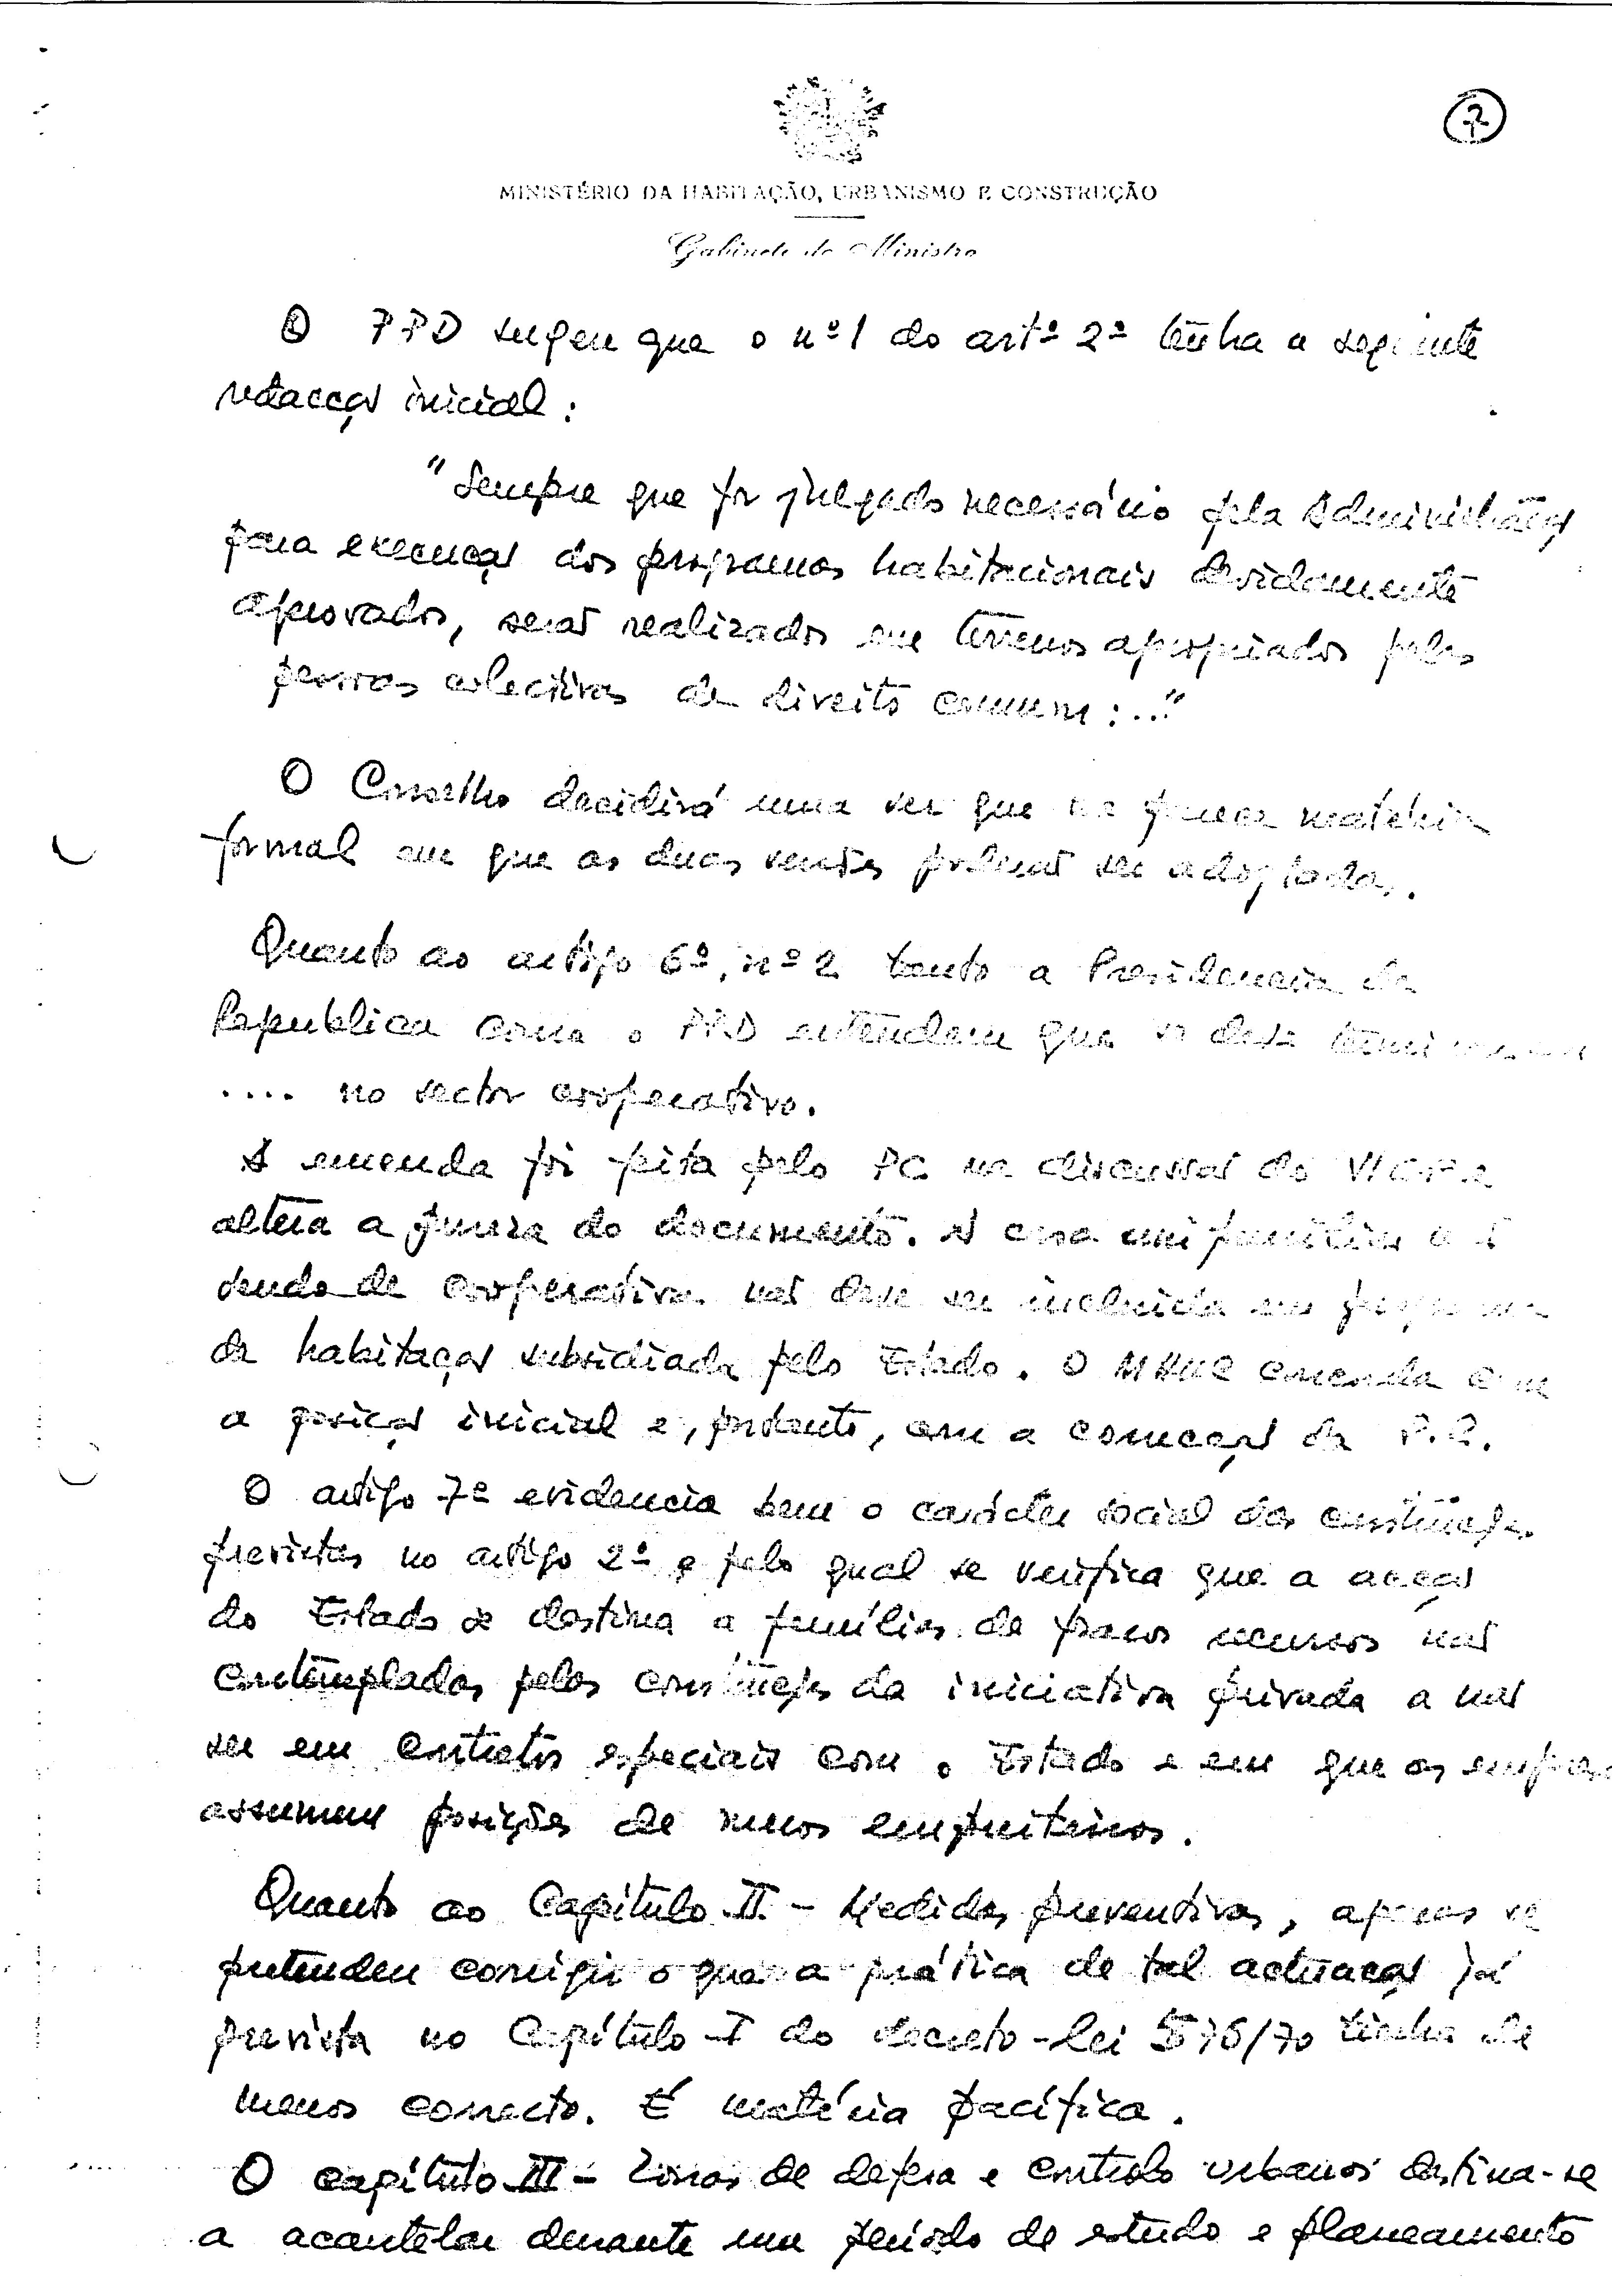 7
MINISTÉRIO DA HABITAÇÃO, URBANISMO E CONSTRUÇÃO
Gabinete do Ministro
O PPD sugere que o nº 1 do artº 2º tenha a seguinte
redacção inicial:
"Sempre que for julgado necessário pela Administração
para execução dos programas habitacionais devidamente
aprovados, serão realizados em terrenos apropriados pelas
pessoas colectivas de direito comum:..."
O Conselho decidirá uma vez que me parece matéria
formal em que as duas versões podem ser adoptadas.
Quanto ao artigo 6º, nº 2 tanto a Presidencia da
Republica como o PPD entendem que se deve terminar
.... no sector cooperativo.
A emenda foi feita pelo PC na discussão do
altera a pureza do documento. A casa unifamiliar
sendo de cooperativa não deve ser incluida em programa
de habitação subsidiada pelo Estado. O MHUC concorda com
a posição inicial e, portanto, com a correcção da P.R.
O artigo 7º evidencia bem o carácter social das construções
previstas no artigo 2º e pelo qual se verifica que a acção
do Estado se destina a famílias de fracos recursos não
contempladas pelas construções da iniciativa privada a não
ser em contratos especiais com o Estado e em que as
assumem posições de meros empreiteiros.
Quanto ao Capítulo II - Medidas preventivas, apenas se
pretendeu corrigir o que a prática de tal actuação já
prevista no Capítulo I do decreto-lei 576/70 tinha de
menos correcto. É matéria pacífica.
O capítulo III - Zonas de defesa e controlo urbanos destina-se
a acautelar durante um período de estudo e planeamento